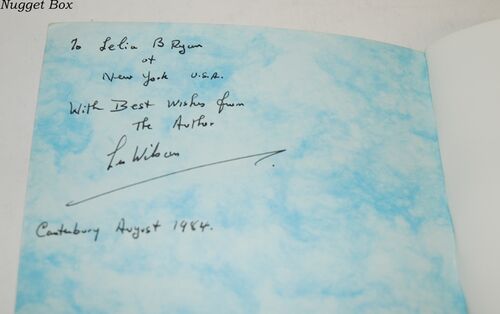 Nugget Box
To Lelia B Ryan
of
New York U.S.A.
With Best Wishes from
The Author
Les Wilson
Canterbury August 1984.